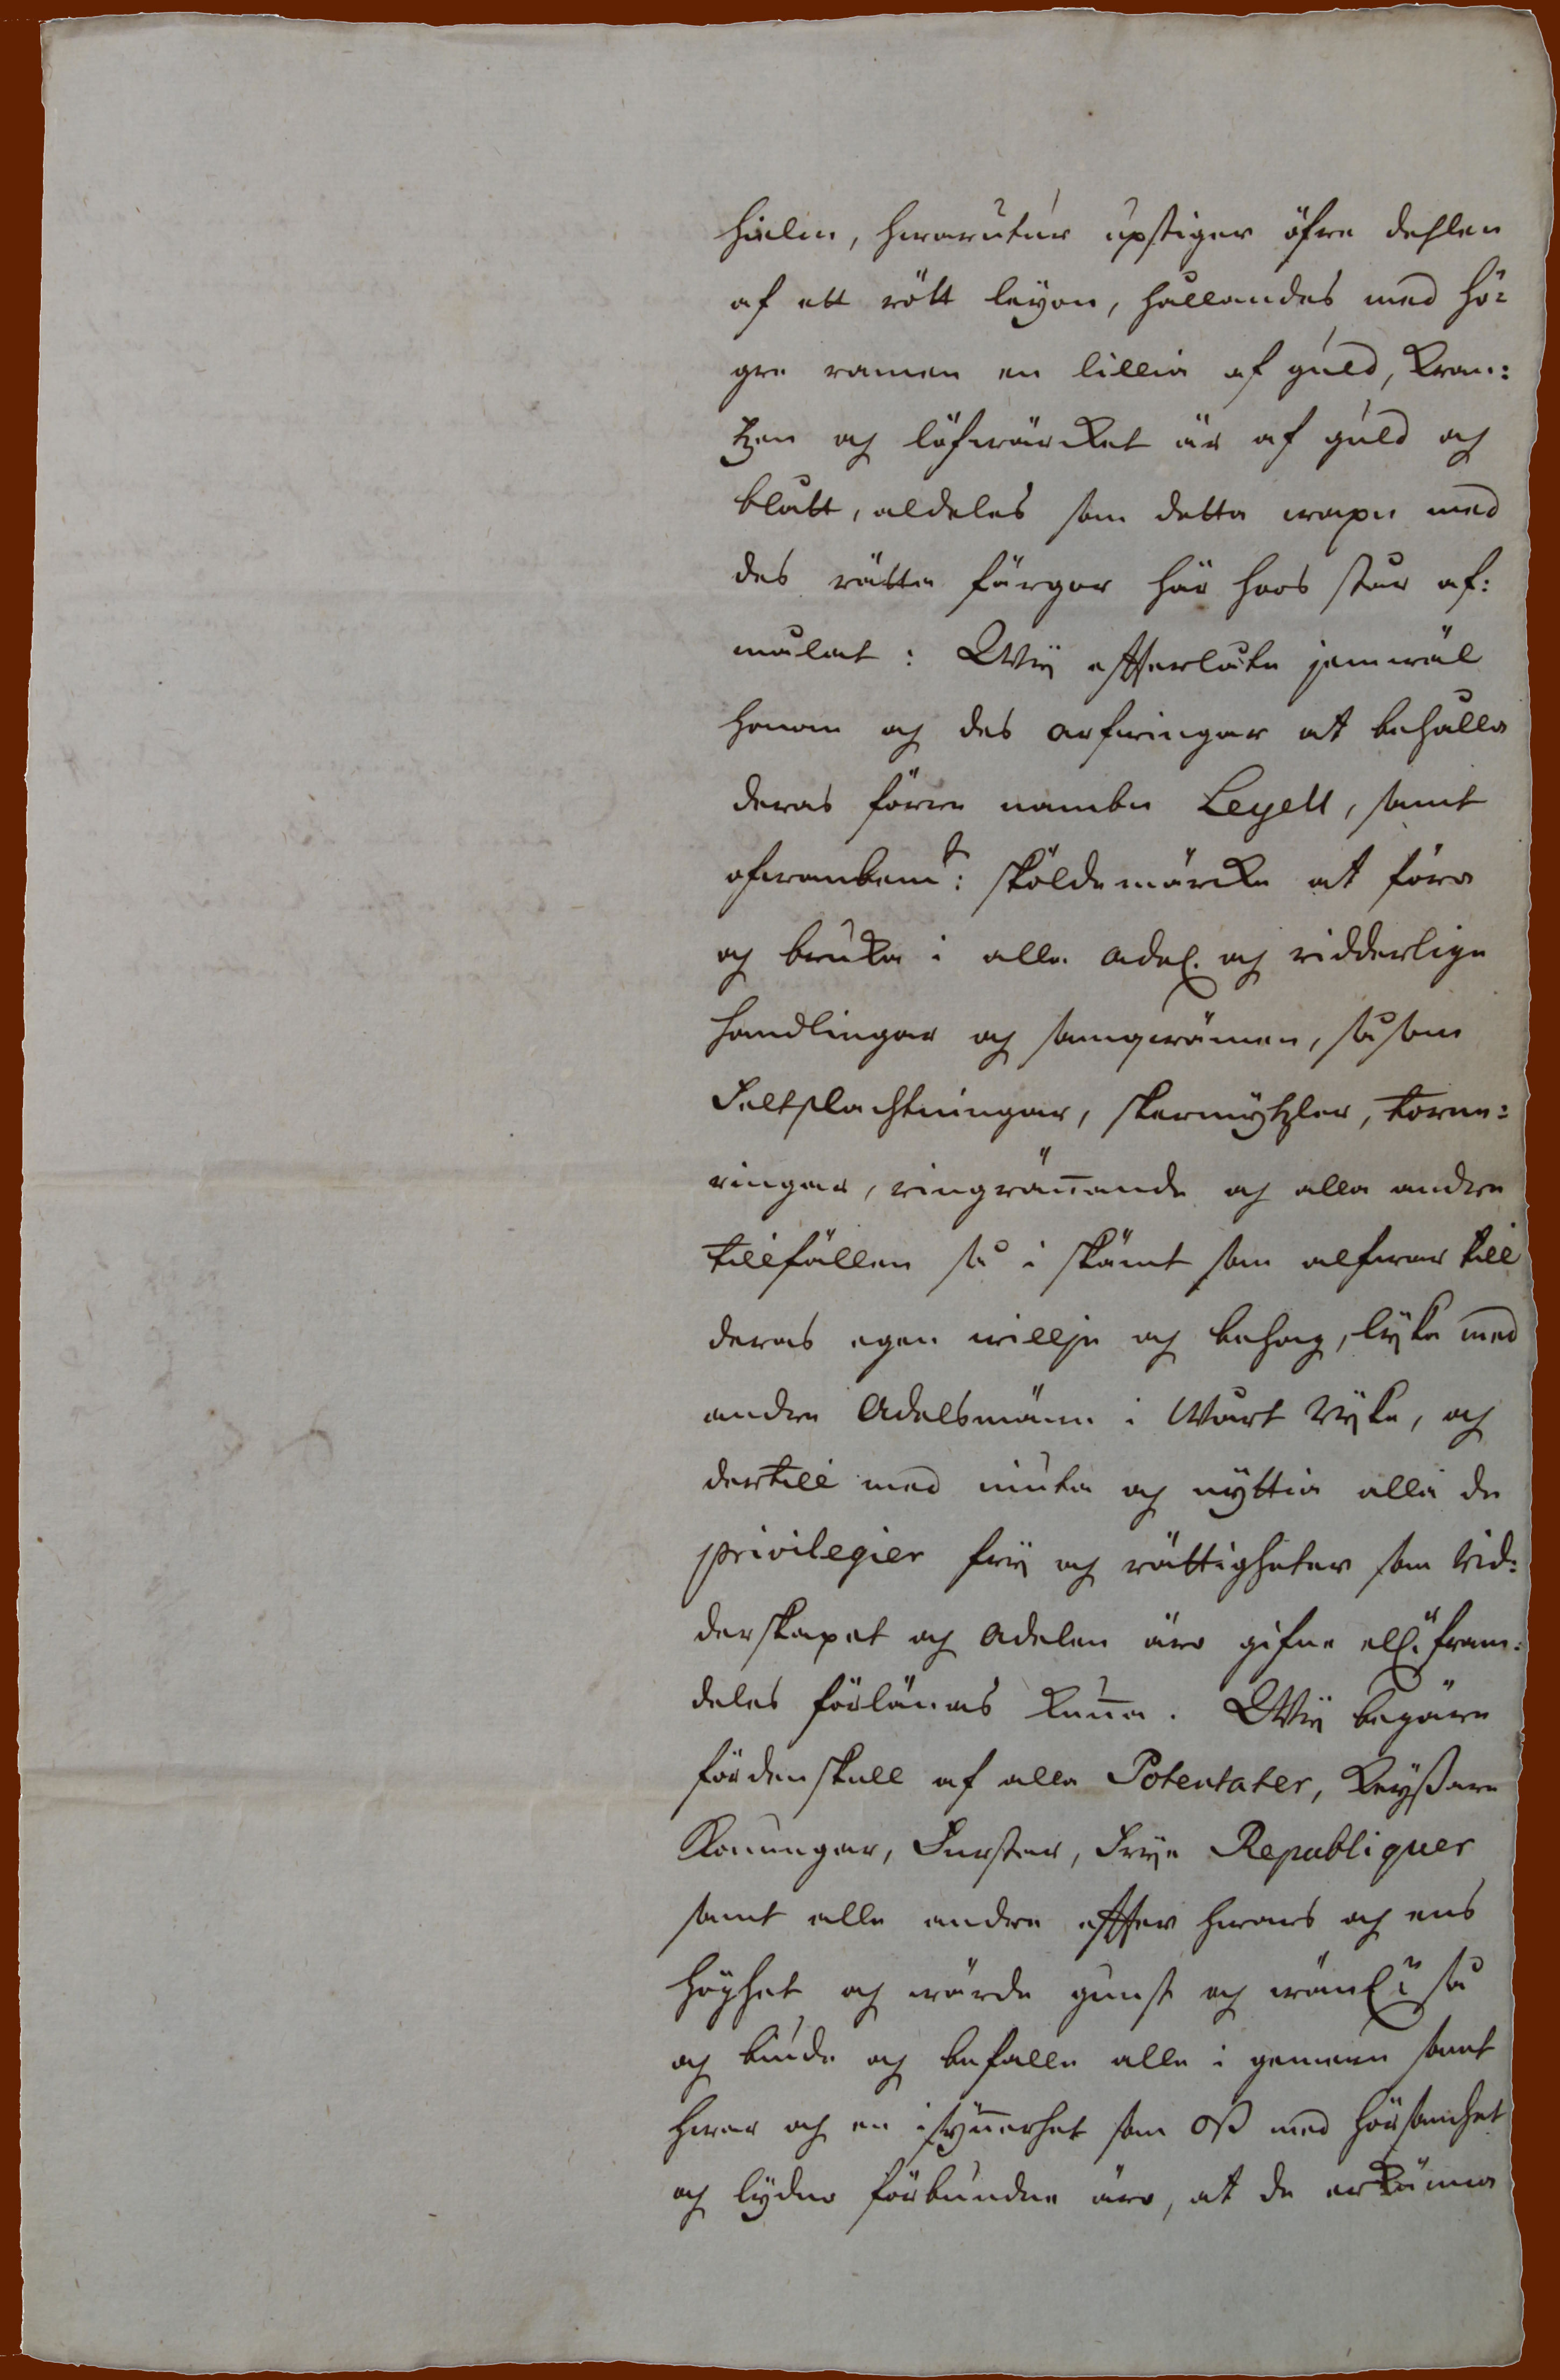 hielm, hwarutur upstiger öfre dehlen
af ett rött leyon, hållandes med hö-
gre ramen en lillia af guld, Kran:
tzen och löfwärcket är af guld och
blått, aldeles som detta wapn med
des rätta färgor här hoos står af:
målat: Wij effterlåte jemwäl
honom och des arfwingar at behålla
deras förre nambn Leyell, samt
ofwanbem:t sköldemärcke at föra
och bruka i alla adel. och ridderlige
handlingar och samqwämen, såsom
Feltslachtningar, skermytzler, torne:
ringar, ringrän̄ande och alla andre
tillfällen så i skämt som alfwar till
deras egen willje och behag, lijka med
andre Adelsmänn i Wårt Rijke, och
dertill med niuta och nyttia alla de
privilegier frij och rättigheter som Rid:
derskapet och Adelen äro gifne ell. fram:
deles förlänas kun̄a. Wij begäre
fördenskull af alla Potentater, Keyßare
Konungar, Furstar, Frije Republiquer
samt alle andre effter hwars och ens
höghet och wärde gunst och wänl. så
och biude och befalle alle i gemeen samt
hwar och en isyn̄erhet som oß med hörsamhet
och lydno förbundne äro, at de erkänna